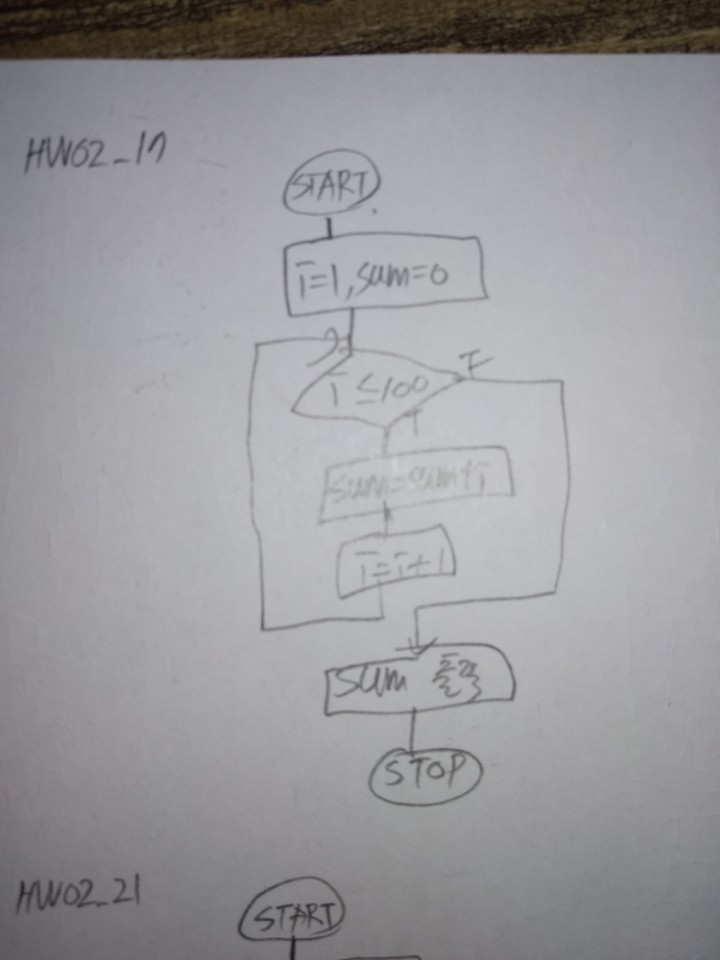 HW02_17
START
i=1, sum=0
i ≤100
F
T
sum=sum+i
i=i+1
sum 출력
STOP
HW02_21
START